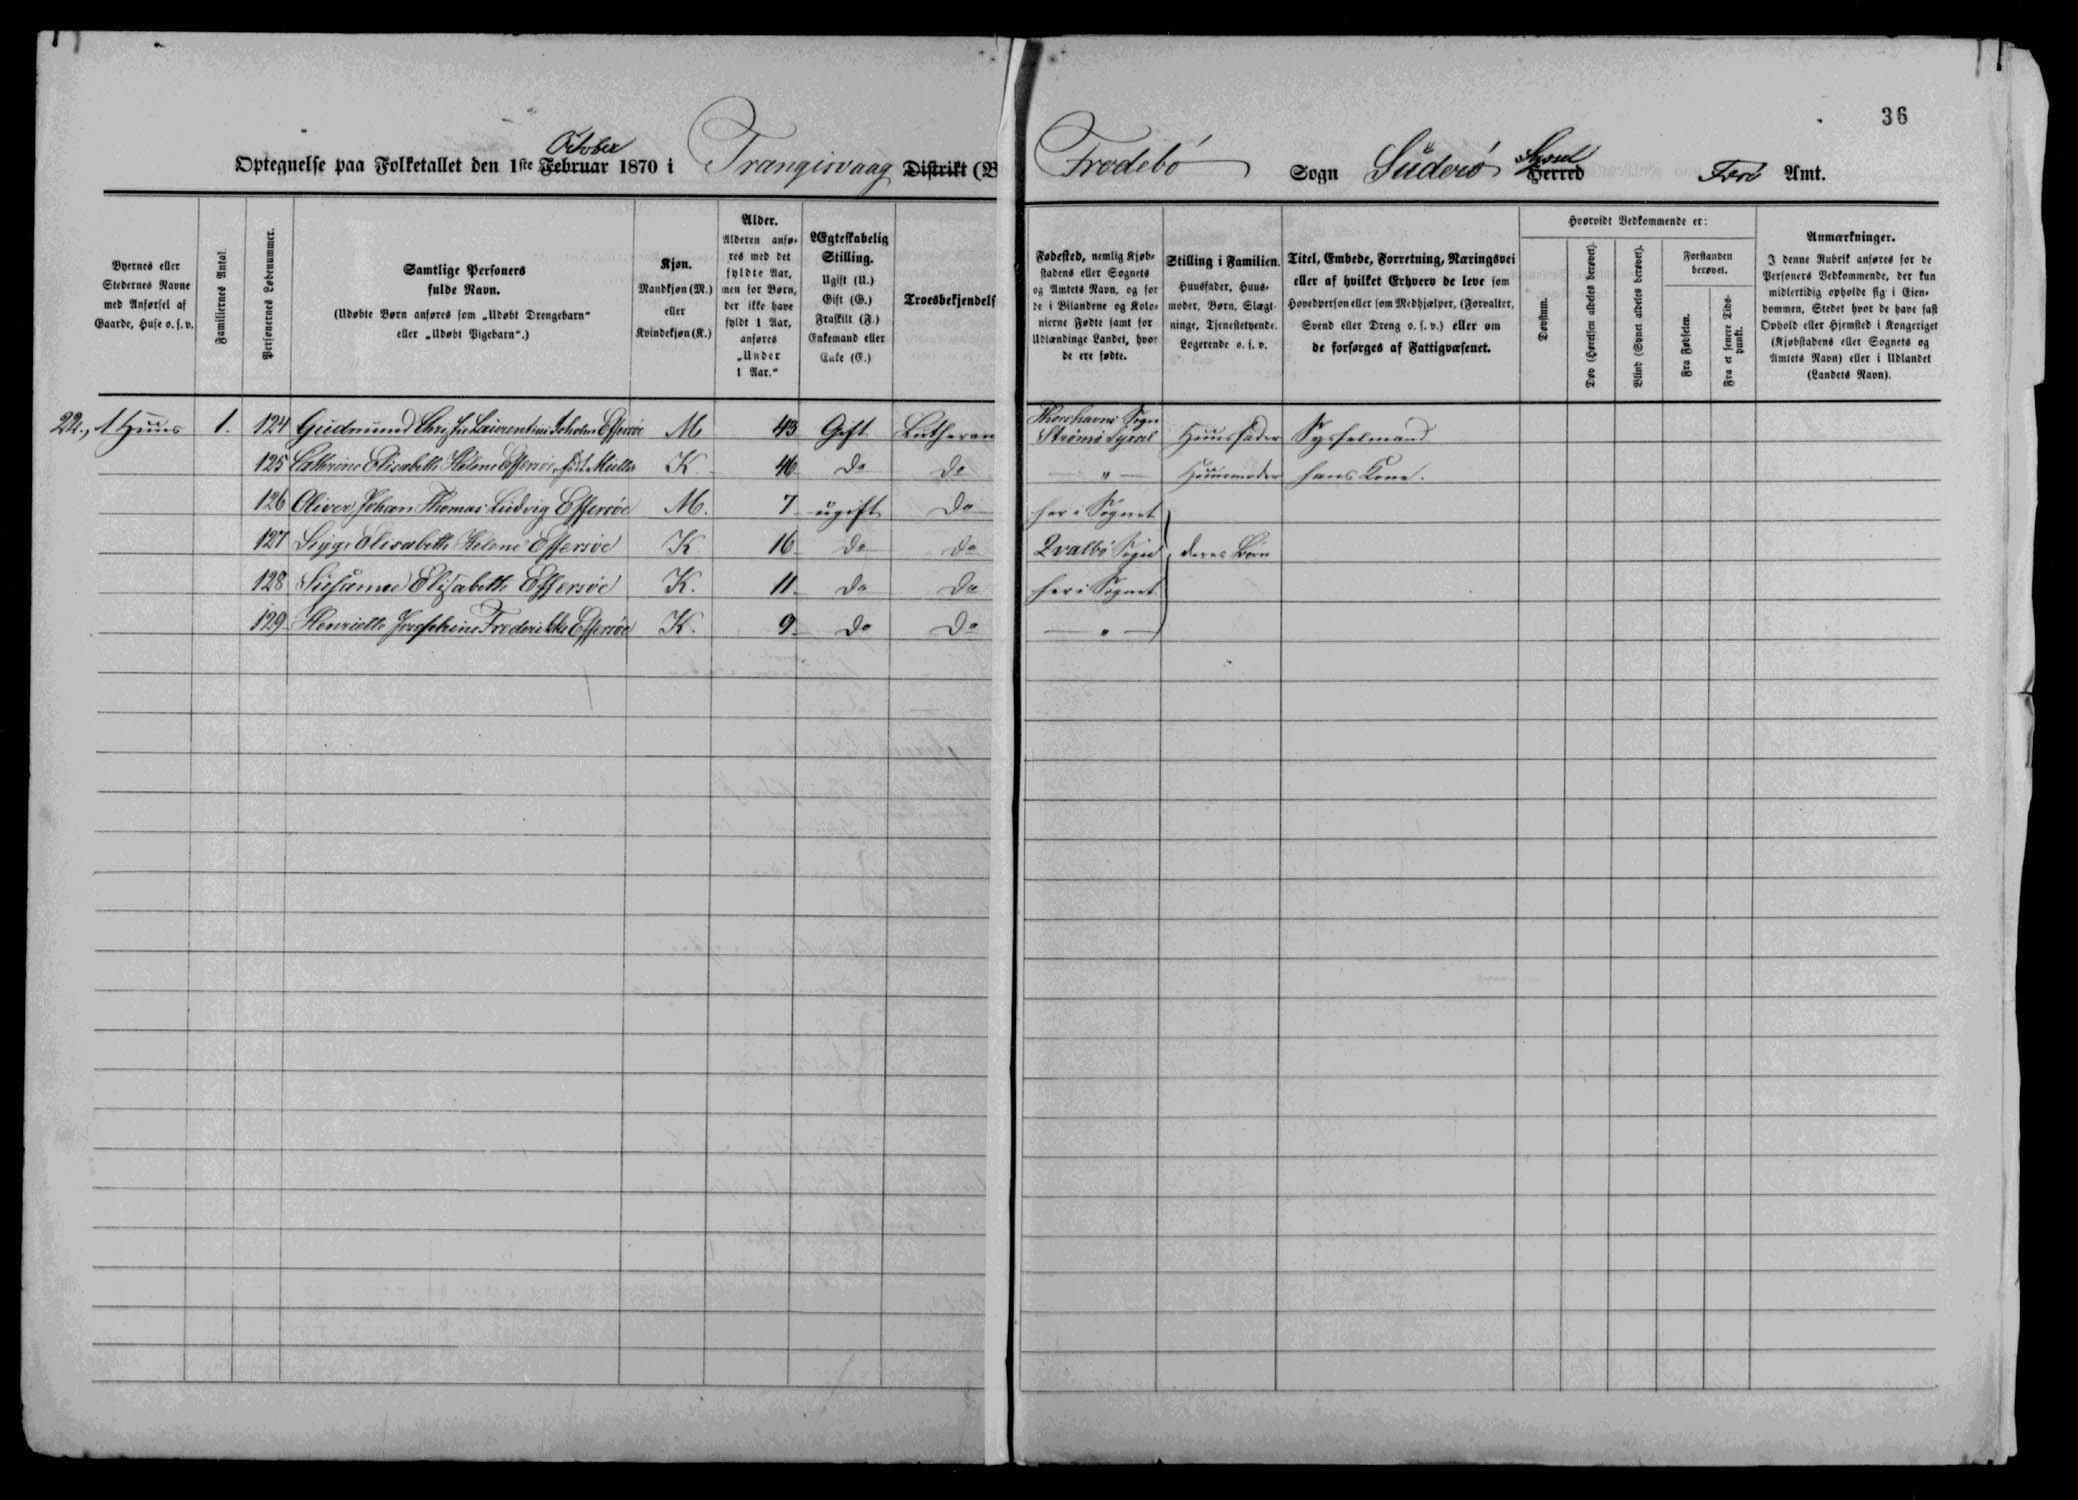 36
October
Optegnelse paa Folketallet den 1ste Februar 1870 i Trangisvaag Distrikt (B
Byernes eller
Stedernes Navne
med Anførsel af
Gaarde, Huse o. s. v.
Familiernes Antal.
Personernes Løbenummer.
Samtlige Personers
fulde Navn.
(Udøbte Børn anføres som „Udøbt Drengebarn“
eller „Udøbt Pigebarn“.)
Kjøn.
Mandkjøn (M.)
eller
Kvindekjøn (K.)
Alder.
Alderen anfø-
res med det
fyldte Aar,
men for Børn,
der ikke have
fyldt 1 Aar,
anføres
„Under
1 Aar.“
Ægteskabelig
Stilling.
Ugift (U.)
Gift (G.)
Fraskilt (F.)
Enkemand eller
Enke (E.)
Troesbekjendels
22., 1 Huus 1. 124 Gudmund Laurentius Effersøe M. 43 Gift Lutheran
125 Cathrine Elisabeth Helene Effersøe født Müller K. 46 do do
126 Oliver Johan Thomas Ludvig Effersøe M. 7 ugift do
127 Elisabeth Helene Effersøe K 16 do do
128 Susanne Elisabeth Effersøe K. 11 do do
129 Henriette Josephine Frederikke Effersøe K. 9 do do
Frodebø Sogn Süderø Syssel Herred Færø Amt.
Fødested, nemlig Kjøb-
stadens eller Sognets
og Amtets Navn, og for
de i Bilandene og Kolo-
nierne Fødte samt for
Udlændinge Landet, hvor
de ere fødte.
Stilling i Familien.
Huusfader, Huus-
moder, Børn, Slægt-
ninge, Tjenestetyende.
Logerende o. s. v.
Titel, Embede, Forretning, Næringsvei
eller af hvilket Erhverv de leve som
Hovedperson eller som Medhjælper, (Forvalter,
Svend eller Dreng o. s. v.) eller om
de forsørges af Fattigvæsenet.
Hvorvidt Vedkommende er:
Døvstum.
Døv (Hørelsen aldeles berøvet).
Blind (Synet aldeles berøvet).
Forstanden
berøvet.
Fra Fødselen.
Fra et senere Tids-
punkt.
Anmærkninger.
I denne Rubrik anføres for de
Personers Vedkommende, der kun
midlertidig opholde sig i Eien-
dommen, Stedet hvor de have fast
Ophold eller Hjemsted i Kongeriget
(Kjøbstadens eller Sognets og
Amtets Navn) eller i Udlandet
(Landets Navn).
Thorshavns Sogn
Strømø Syssel Huusfader Sysselmand
— " — Huusmoder hans Kone.
her i Sognet
Qvalbø Sogn deres Børn
her i Sognet
— " —